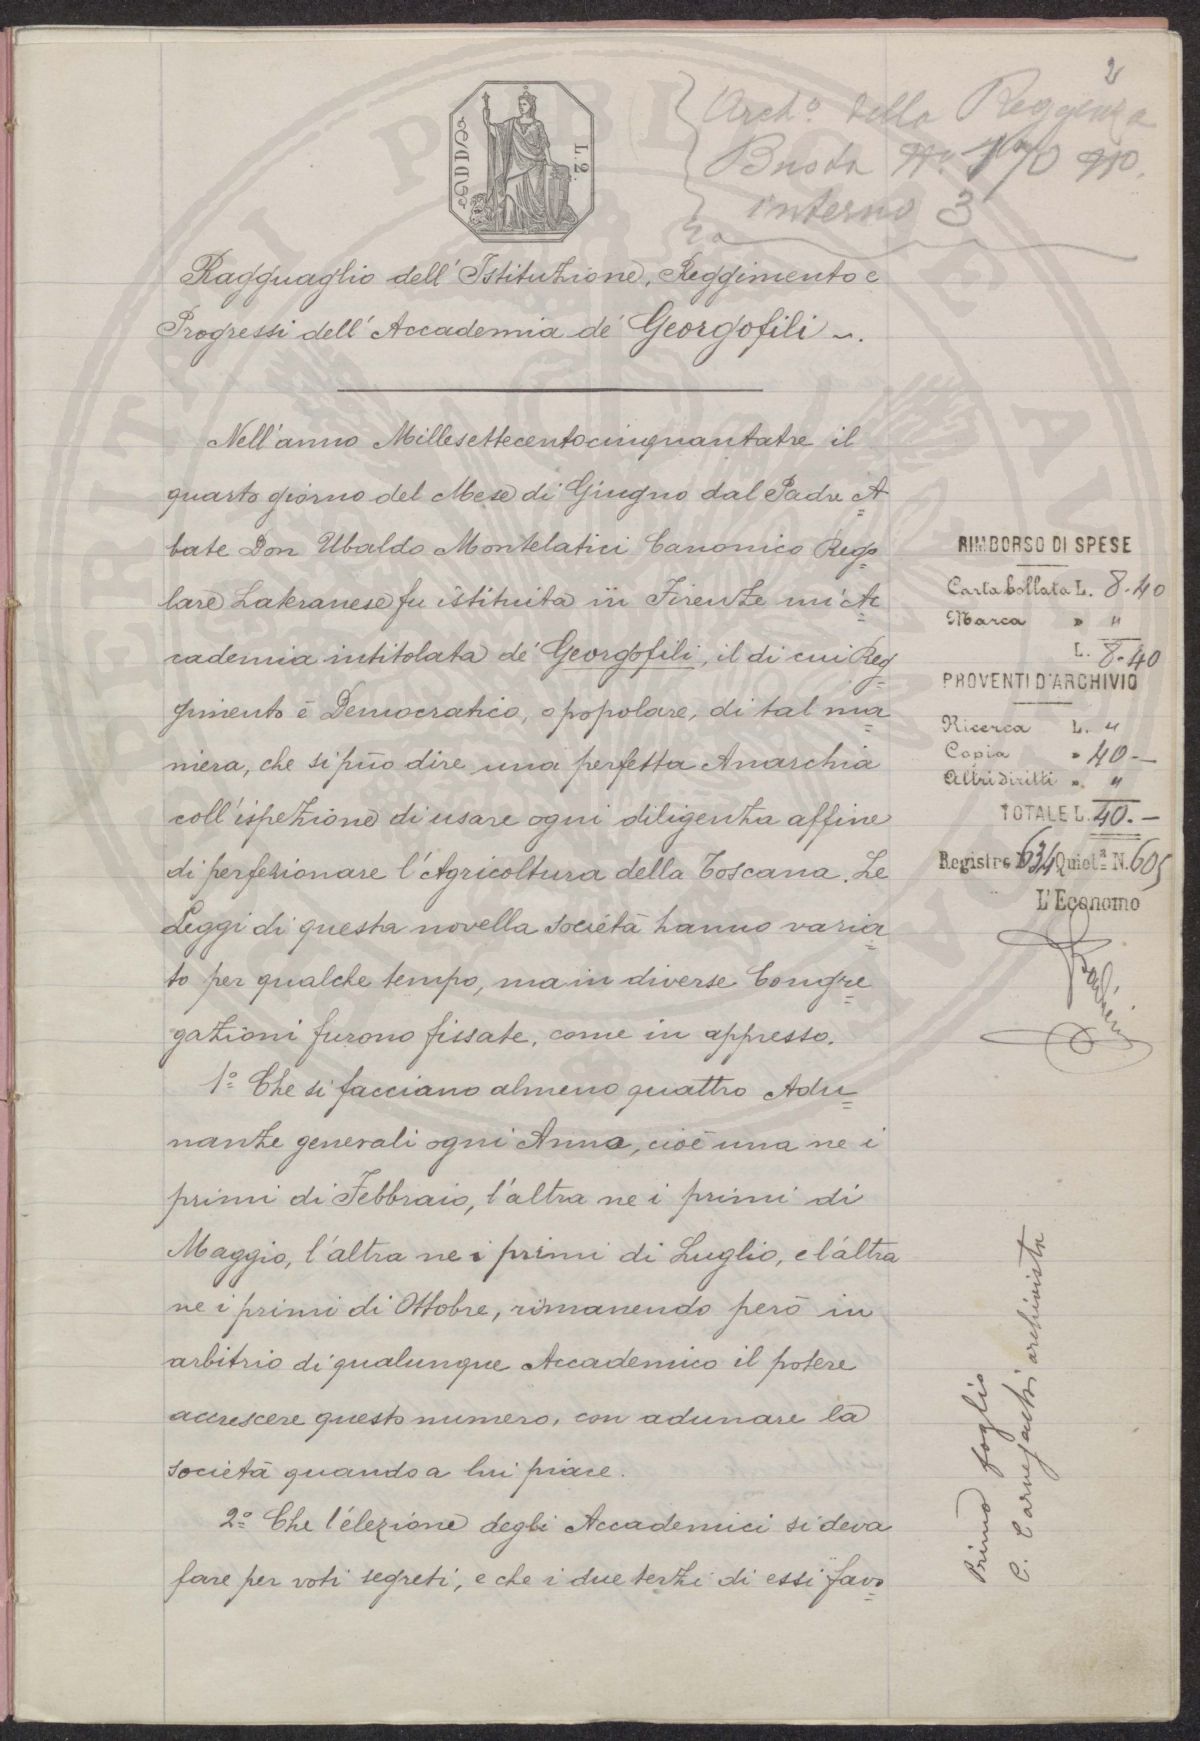 2
Arch.º della Reggenza
Busta Nº 170
interno 3
L. 2.
Ragguaglio dell'Istituzione, Reggimento e
Progressi dell'Accademia de' Georgofili ~.
Nell'anno Millesettecentocinquantatre il
quarto giorno del Mese di Giugno dal Padre A=
bate Don Ubaldo Montelatici Canonico Rego=
lare Lateranese fu istituita in Firenze un'Ac=
cademia intitolata de' Georgofili, il di cui Reg=
gimento è Democratico, o popolare, di tal ma=
niera, che si può dire una perfetta Anarchia
coll'ispezione di usare ogni diligenza affine
di perfezionare l'Agricoltura della Toscana. Le
Leggi di questa novella società hanno varia=
to per qualche tempo, ma in diverse Congre=
gazioni furono fissate, come in appresso.
1º Che si facciano almeno quattro Adu=
nanze generali ogni Anno, cioè una ne i
primi di Febbraio, l'altra ne i primi di
Maggio, l'altra ne i primi di Luglio, e l'altra
ne i primi di Ottobre, rimanendo però in
arbitrio di qualunque Accademico il potere
accrescere questo numero, con adunare la
società quando a lui piace.
2º Che l'elezione degli Accademici si deva
fare per voti segreti, e che i due terzi di essi favo=
RIMBORSO DI SPESE
Carta bollata L. 8.40
Marca » "
L. 8.40
PROVENTI D'ARCHIVIO
Ricerca L. "
Copia » 40 —
Altri diritti » "
TOTALE L. 40. —
Registro N. 634 Quiet.ª N. 605
L'Economo
Primo foglio
C. Carnesecchi archivista